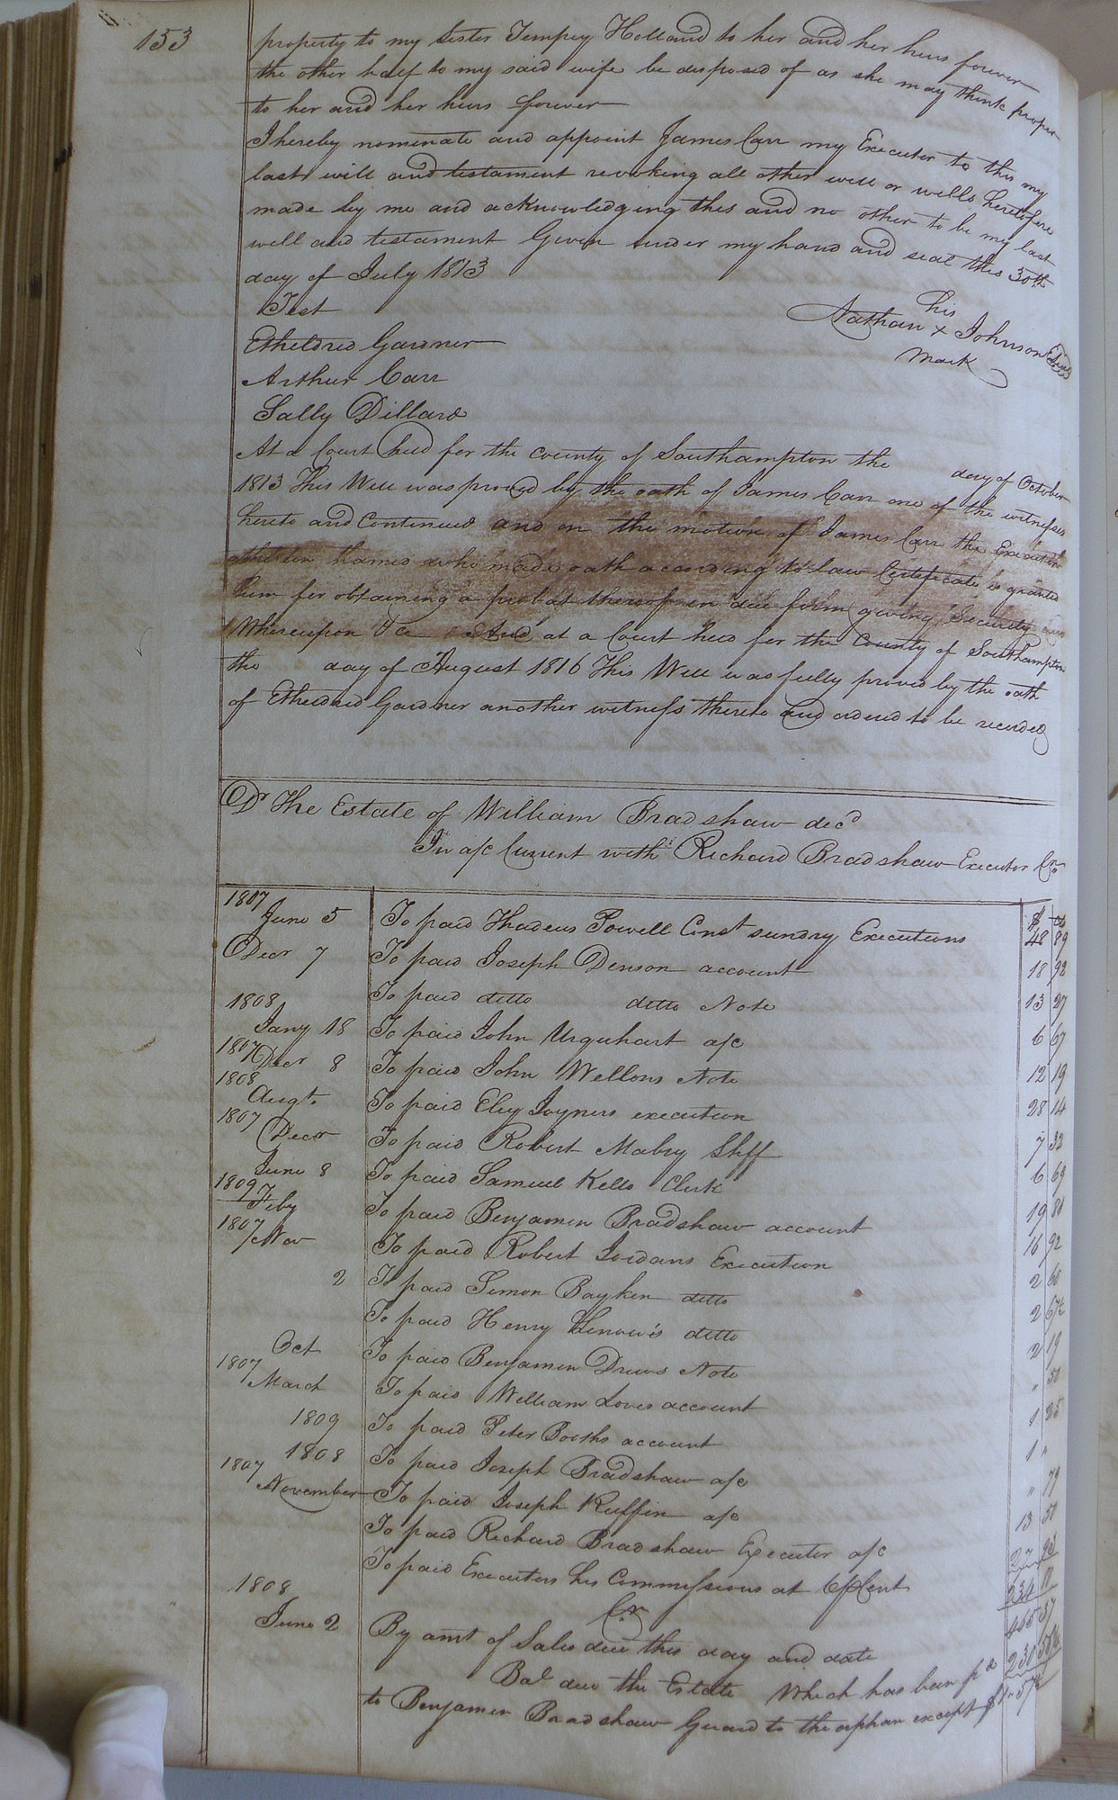 153
property to my sister Tempey Holland to her and her heirs forever
the other half to my said wife be disposed of as she may think proper
to her and her heirs forever
I hereby nominate and appoint James Carr my Executor to this my
last will and testament revoking all other will or wills heretofore
made by me and acknowledging this and no other to be my last
will and testament Given under my hand and seal this 30th
day of July 1813
Test
his
Nathan x Johnson
mark
Etheldred Gardner
Arthur Carr
Sally Dillard
At a Court held for the county of Southampton the day of October
1813 This Will was proved by the oath of James Carr one of the witnesses
hereto and Continued and on the motion of James Carr the Executor
therein named who made oath according to law Certificate is granted
him for obtaining a probat thereof in due form giving Security
Whereupon &c And at a Court held for the County of Southampton
the day of August 1816 This Will was fully proved by the oath
of Etheldred Gardner another witness thereto and ordered to be recorded
Dr The Estate of William Bradshaw decd
In a/c Current with Richard Bradshaw Executor Cr
1807 $ cts
June 5 To paid Thadeus Powell Const sundry Executions 48 89
Decr 7 To paid Joseph Denson account 18 92
To paid ditto ditto Note 13 27
1808
Jany 18 To paid John Urquhart a/c 6 67
1807 Decr 8 To paid John Wellons Note 12 19
1808 Augt. To paid Eley Joyners execution 28 14
1807 Decr To paid Robert Mabry Shff 7 32
June 8 To paid Samuel Kello Clerk 6 69
1809 Feby To paid Benjamin Bradshaw account 19 81
1807 Nov To paid Robert Jordans Execution 16 92
2 To paid Simon Boykin ditto 2 60
To paid Henry ditto 2
Oct To paid Benjamin Drews Note 2 19
1807 March To paid William Loves account " 50
1809 To paid Peter Booths account 1 25
1808 To paid Joseph Bradshaw a/c 1 "
1807 November To paid Joseph Ruffin a/c " 79
To paid Richard Bradshaw Executor a/c 13 50
To paid Executors his Commissions at 6 pCent 27
Cr 234 11
1808
June 2 By amt of Sales due this day and date 465
Bal due the Estate Which has been pd 230
to Benjamin Bradshaw Guard to the orphan except